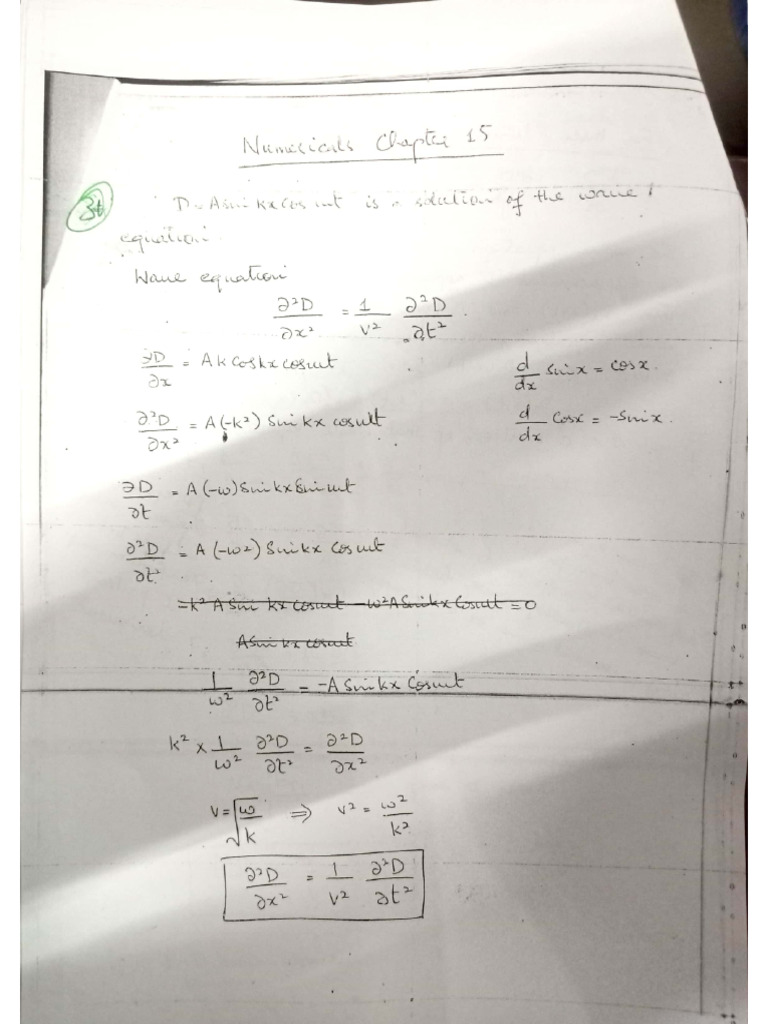 Numericals Chapter 15
34
D = A sin kx cos ωt is a solution of the wave
equation.
Wave equation
∂²D/∂x² = 1/v² ∂²D/∂t².
∂D/∂x = Ak cos kx cos ωt
d/dx sin x = cos x.
∂²D/∂x² = A(-k²) Sin kx cos ωt
d/dx Cos x = -Sin x.
∂D/∂t = A(-ω) Sin kx Sin ωt
∂²D/∂t² = A(-ω²) Sin kx Cos ωt
= -k² A Sin kx cos ωt - ω² A Sin kx Cos ωt = 0
A Sin kx cos ωt
1/ω² ∂²D/∂t² = -A Sin kx Cos ωt
k² × 1/ω² ∂²D/∂t² = ∂²D/∂x²
V = √ω/k ⇒ V² = ω²/k²
∂²D/∂x² = 1/V² ∂²D/∂t²